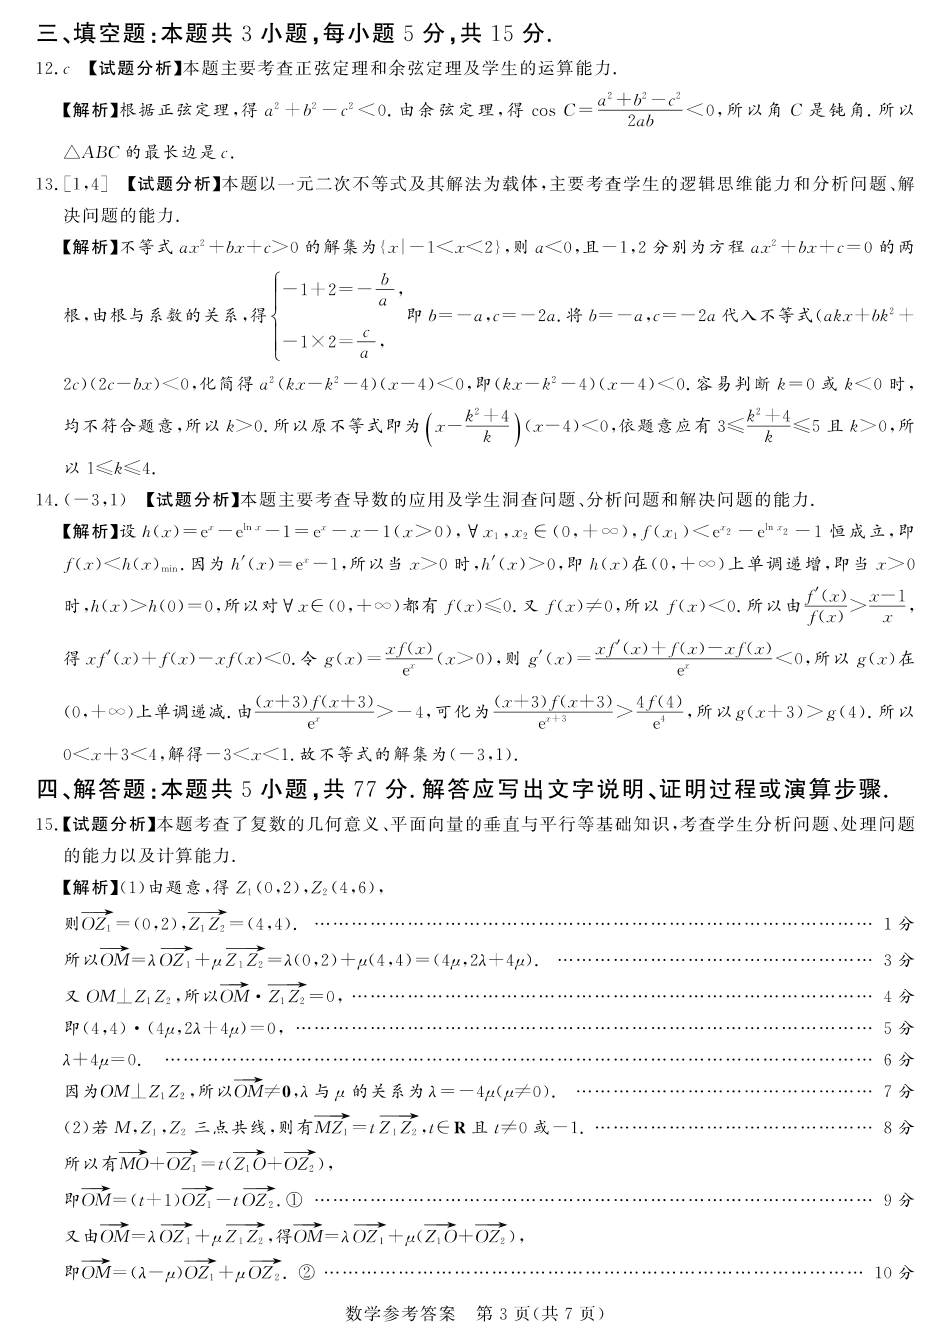 三、填空题:本题共 3 小题,每小题 5 分,共 15 分.
12. c 【试题分析】本题主要考查正弦定理和余弦定理及学生的运算能力.
【解析】根据正弦定理,得 a²+b²-c²<0. 由余弦定理,得 cos C=(a²+b²-c²)/(2ab)<0,所以角 C 是钝角. 所以
△ABC 的最长边是 c.
13. [1,4] 【试题分析】本题以一元二次不等式及其解法为载体,主要考查学生的逻辑思维能力和分析问题、解
决问题的能力.
【解析】不等式 ax²+bx+c>0 的解集为{x|-1<x<2},则 a<0,且-1,2 分别为方程 ax²+bx+c=0 的两
根,由根与系数的关系,得{-1+2=-b/a, -1×2=c/a, 即 b=-a,c=-2a. 将 b=-a,c=-2a 代入不等式(akx+bk²+
2c)(2c-bx)<0,化简得 a²(kx-k²-4)(x-4)<0,即(kx-k²-4)(x-4)<0. 容易判断 k=0 或 k<0 时,
均不符合题意,所以 k>0. 所以原不等式即为(x-(k²+4)/k)(x-4)<0,依题意应有 3≤(k²+4)/k≤5 且 k>0,所
以 1≤k≤4.
14. (-3,1) 【试题分析】本题主要考查导数的应用及学生洞查问题、分析问题和解决问题的能力.
【解析】设 h(x)=e^x-e^(ln x)-1=e^x-x-1(x>0),∀x₁,x₂∈(0,+∞),f(x₁)<e^(x₂)-e^(ln x₂)-1 恒成立,即
f(x)<h(x)min. 因为 h′(x)=e^x-1,所以当 x>0 时,h′(x)>0,即 h(x)在(0,+∞)上单调递增,即当 x>0
时,h(x)>h(0)=0,所以对∀x∈(0,+∞)都有 f(x)≤0. 又 f(x)≠0,所以 f(x)<0. 所以由 f′(x)/f(x)>(x-1)/x,
得 xf′(x)+f(x)-xf(x)<0. 令 g(x)=xf(x)/e^x(x>0),则 g′(x)=(xf′(x)+f(x)-xf(x))/e^x<0,所以 g(x)在
(0,+∞)上单调递减. 由((x+3)f(x+3))/e^x>-4,可化为((x+3)f(x+3))/e^(x+3)>4f(4)/e⁴,所以g(x+3)>g(4). 所以
0<x+3<4,解得-3<x<1. 故不等式的解集为(-3,1).
四、解答题:本题共 5 小题,共 77 分. 解答应写出文字说明、证明过程或演算步骤.
15.【试题分析】本题考查了复数的几何意义、平面向量的垂直与平行等基础知识,考查学生分析问题、处理问题
的能力以及计算能力.
【解析】(1)由题意,得 Z₁(0,2),Z₂(4,6),
则 $\overrightarrow{OZ_1}$=(0,2),$\overrightarrow{Z_1Z_2}$=(4,4). …… 1 分
所以 $\overrightarrow{OM}$=λ$\overrightarrow{OZ_1}$+μ$\overrightarrow{Z_1Z_2}$=λ(0,2)+μ(4,4)=(4μ,2λ+4μ). …… 3 分
又 OM⊥Z₁Z₂,所以 $\overrightarrow{OM}$·$\overrightarrow{Z_1Z_2}$=0, …… 4 分
即(4,4)·(4μ,2λ+4μ)=0, …… 5 分
λ+4μ=0. …… 6 分
因为OM⊥Z₁Z₂,所以 $\overrightarrow{OM}$≠0,λ 与 μ 的关系为 λ=-4μ(μ≠0). …… 7 分
(2)若 M,Z₁,Z₂ 三点共线,则有 $\overrightarrow{MZ_1}$=t$\overrightarrow{Z_1Z_2}$,t∈R 且 t≠0 或-1. …… 8 分
所以有 $\overrightarrow{MO}$+$\overrightarrow{OZ_1}$=t($\overrightarrow{Z_1O}$+$\overrightarrow{OZ_2}$),
即 $\overrightarrow{OM}$=(t+1)$\overrightarrow{OZ_1}$-t$\overrightarrow{OZ_2}$. ① …… 9 分
又由 $\overrightarrow{OM}$=λ$\overrightarrow{OZ_1}$+μ$\overrightarrow{Z_1Z_2}$,得 $\overrightarrow{OM}$=λ$\overrightarrow{OZ_1}$+μ($\overrightarrow{Z_1O}$+$\overrightarrow{OZ_2}$),
即 $\overrightarrow{OM}$=(λ-μ)$\overrightarrow{OZ_1}$+μ$\overrightarrow{OZ_2}$. ② …… 10 分
数学参考答案 第 3 页(共 7 页)